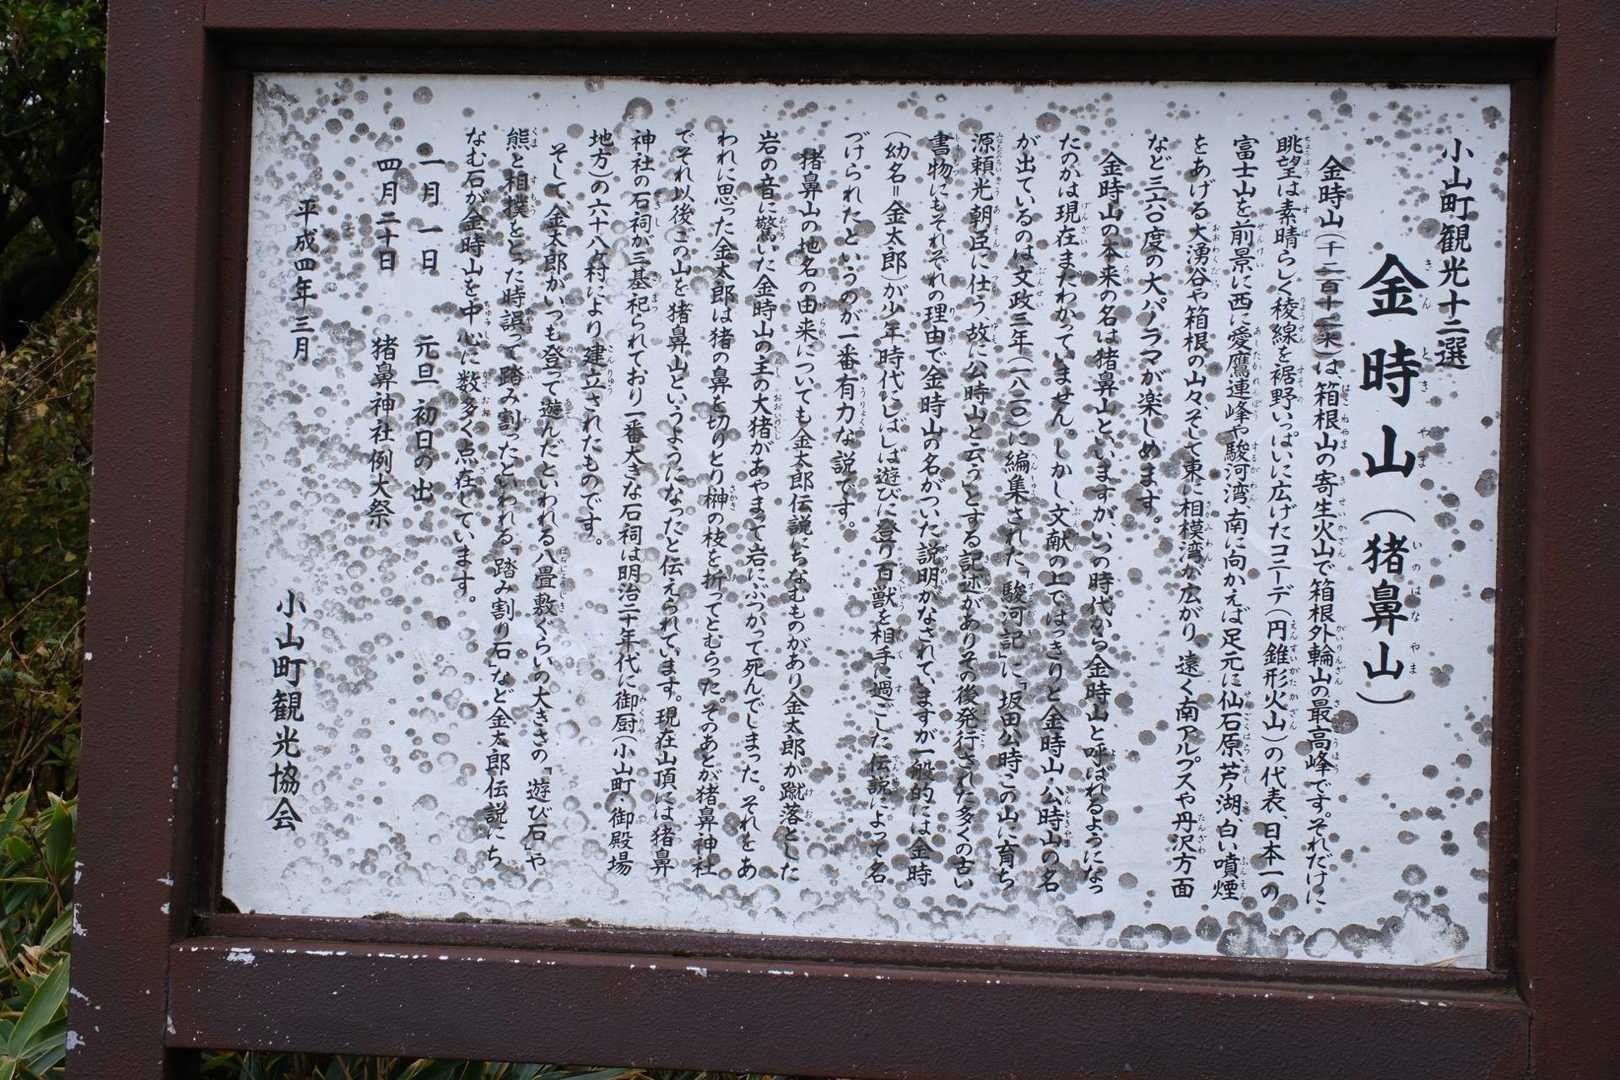 小山町観光十二選
金時山(猪鼻山)
金時山(千二百十二米)は、箱根山の寄生火山で箱根外輪山の最高峰です。それだけに
眺望は素晴らしく稜線を裾野いっぱいに広げたコニーデ(円錐形火山)の代表、日本一の
富士山を前景に西に愛鷹連峰や駿河湾、南に向かえば足元に仙石原、芦ノ湖、白い噴煙
をあげる大湧谷や箱根の山々、そして東に相模湾が広がり、遠く南アルプスや丹沢方面
など三六〇度の大パノラマが楽しめます。
金時山の本来の名は猪鼻山といいますが、いつの時代から金時山と呼ばれるようになっ
たのかは現在まだわかっていません。しかし、文献の上ではっきりと金時山、公時山の名
が出ているのは文政三年(一八二〇)に編集された「駿河記」に「坂田公時この山に育ち
源頼光朝臣に仕う故に公時山と云う」とする記述がありその後発行された多くの古い
書物にもそれぞれの理由で金時山の名がついた説明がなされていますが一般的には金時
(幼名=金太郎)が少年時代にしばしば遊びに登り百獣を相手に過ごした伝説によって名
づけられたというのが一番有力な説です。
猪鼻山の地名の由来についても金太郎伝説にちなむものがあり金太郎が蹴落とした
岩の音に驚いた金時山の主の大猪があやまって岩にぶつかって死んでしまった。それをあ
われに思った金太郎は猪の鼻を切りとり榊の枝を折ってとむらった。そのあとが猪鼻神社
でそれ以後、この山を猪鼻山というようになったと伝えられています。現在山頂には猪鼻
神社の石祠が三基祀られており一番大きな石祠は明治二十年代に御厨(小山町、御殿場
地方)の六十八ヵ村により建立されたものです。
そして、金太郎がいつも登って遊んだといわれる八畳敷ぐらいの大きさの「遊び石」や
熊と相撲をとった時誤って踏み割ったといわれる「踏み割り石」など金太郎伝説にち
なむ石が金時山を中心に数多く点在しています。
一月一日 元旦 初日の出
四月二十日 猪鼻神社例大祭
平成四年三月
小山町観光協会